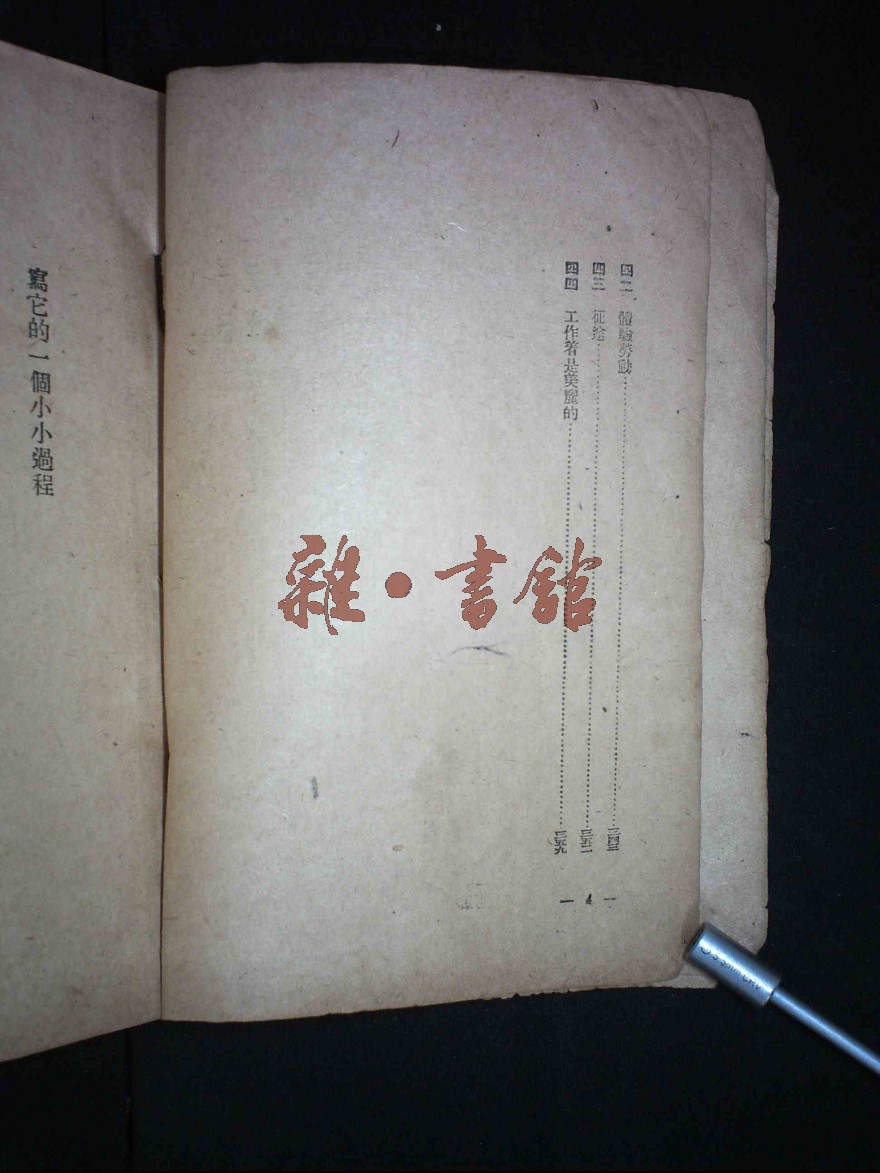 四二 體驗勞動
四三 征途
四四 工作著是美麗的
— 4 —
寫它的一個小小過程
雜·書館